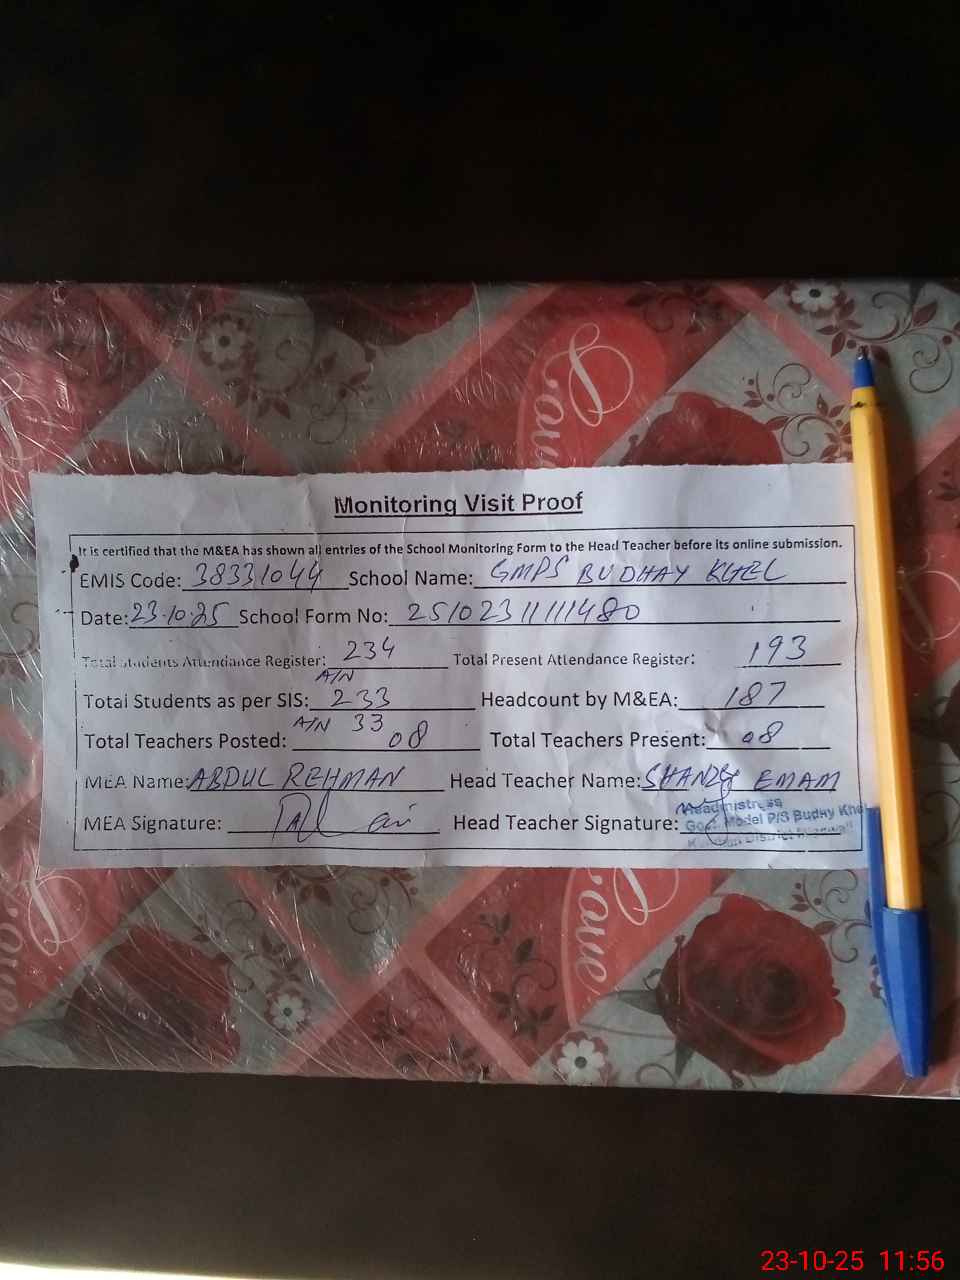 Love
Love
Monitoring Visit Proof
It is certified that the M&EA has shown all entries of the School Monitoring Form to the Head Teacher before its online submission.
EMIS Code: 38331044 School Name: GMPS BUDHAY KHEL
Date: 23-10-25 School Form No: 25102311111480
Total Students Attendance Register: 234 Total Present Attendance Register: 193
A/N
Total Students as per SIS: 233 Headcount by M&EA: 187
A/N 33
Total Teachers Posted: 08 Total Teachers Present: 08
MEA Name: ABDUL REHMAN Head Teacher Name: EMAM
MEA Signature: Head Teacher Signature:
Headmistress
Govt Model P/S Budhy Khel
District
Love
Love
23-10-25 11:56